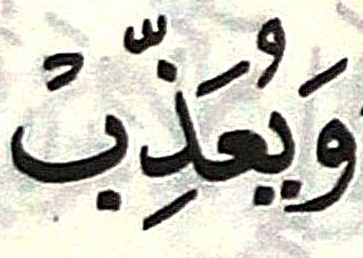 وَيُعَذِّبَ